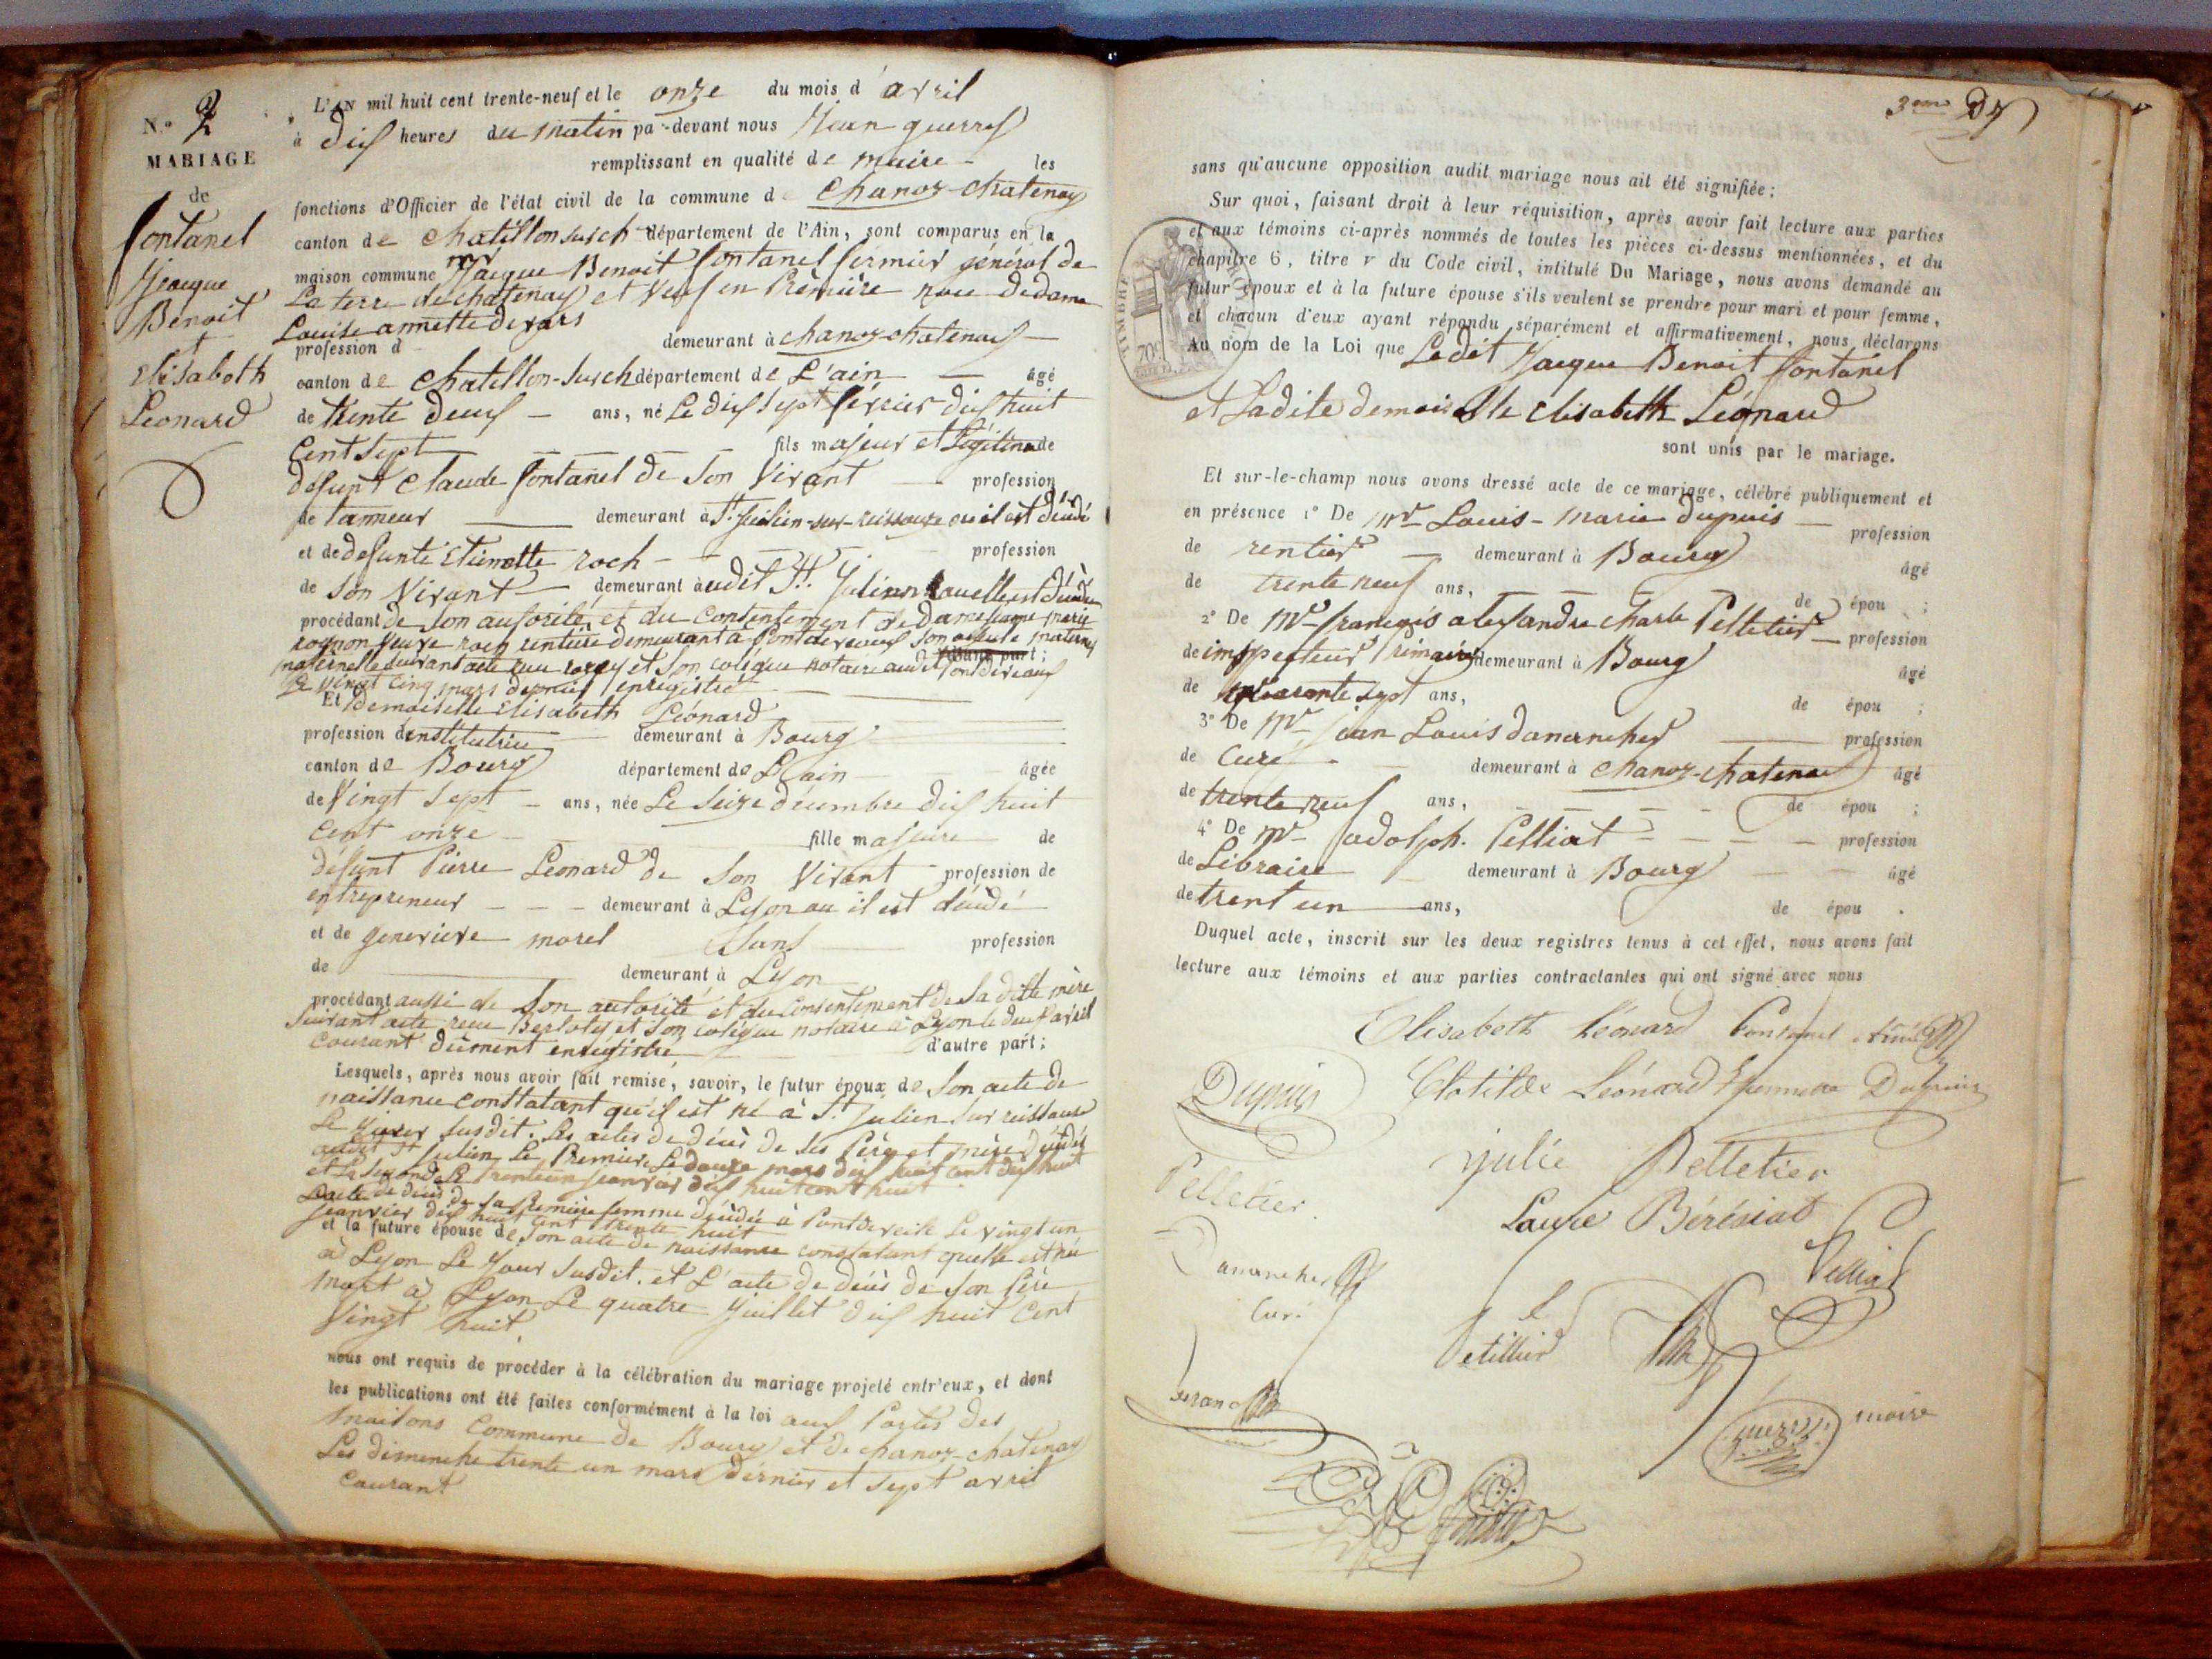 N.o 2
MARIAGE
de
fontanel
Jacque
Benoit
+
Elisabeth
Léonard
L'AN mil huit cent trente-neuf et le onze du mois d'avril
à dix heures du matin par-devant nous Jean guerry
remplissant en qualité de maire les
fonctions d'Officier de l'état civil de la commune de Chanoz-chatenay
canton de chatillon sur ch département de l'Ain, sont comparus en la
maison commune mr Jacque Benoit fontanel fermier général de
La terre de chatenay et Veuf en Premiere noce de dame
Louise annette
profession d demeurant à chanoz-chatenay
canton de Chatillon-sur ch département de L'ain âgé
de trente deux ans, né Le dix sept février dix huit
Cent sept fils majeur et Légitime de
defunt Claude fontanel de Son Vivant profession
de tanneur demeurant à St. Julien-sur-reissouze ou il est décédé
et de defunte Etiennette roch profession
de Son Vivant demeurant audit St. Julien laquelle est décédée
procédant de Son autorité et du Consentement de dame marie
veuve roch rentiere demeurant à Pontdeveaux Son maternelle
maternelle suivant acte reçu et Son colégue notaire audit Pontdeveaux
Le Vingt Cinq mars dernier enregistré
Et demoiselle Elisabeth Léonard
profession d'institutrice demeurant à Bourg
canton de Bourg département de L'ain âgée
de Vingt Sept ans, née Le Seize décembre dix huit
Cent onze fille majeure de
défunt Pierre Léonard de Son Vivant profession de
entrepreneur demeurant à Lyon ou il est décédé
et de genevieve morel Sans profession
de demeurant à Lyon
procédant aussi de Son autorité et du Consentement de Sa dite mère
Suivant acte reçu Berloty et Son colégue notaire à Lyon le deux avril
Courant dûment enregistré d'autre part;
Lesquels, après nous avoir fait remise, savoir, le futur époux de Son acte de
naissance constatant qu'il est né à St. Julien sur reissouze
Le jour susdit. Les actes de décès de Ses Père et mère décédés
audit St Julien Le Premier Le douze mars dix huit cent dix huit
et La Seconde Le trente un janvier dix huit cent huit
L'acte de décès de Sa Premiere femme décédée à Pontdeveile Le vingt un
Janvier dix huit cent trente huit
et la future épouse de Son acte de naissance constatant quelle est née
à Lyon Le Jour Susdit. et L'acte de décès de Son Père
mort à Lyon Le quatre Juillet dix huit Cent
Vingt huit
nous ont requis de procéder à la célébration du mariage projeté entr'eux, et dont
les publications ont été faites conformément à la loi aux Portes des
maisons Commune de Bourg et de chanoz-chatenay
Les dimenche trente un mars dernier et sept avril
Courant
3eme
sans qu'aucune opposition audit mariage nous ait été signifiée;
Sur quoi, faisant droit à leur réquisition, après avoir fait lecture aux parties
et aux témoins ci-après nommés de toutes les pièces ci-dessus mentionnées, et du
chapitre 6, titre v du Code civil, intitulé Du Mariage, nous avons demandé au
futur époux et à la future épouse s'ils veulent se prendre pour mari et pour femme,
et chacun d'eux ayant répondu séparément et affirmativement, nous déclarons
Au nom de la Loi que Ledit Jacque Benoit fontanel
et Ladite demoiselle elisabeth Léonard
sont unis par le mariage.
TIMBRE
ROYAL
70c
Et sur-le-champ nous avons dressé acte de ce mariage, célébré publiquement et
en présence 1° De mr Louis-marie dupuis profession
de rentier demeurant à Bourg âgé
de trente neuf ans, de épou ;
2° De mr françois alexandre charle Pelletier profession
de inspecteur Primaire demeurant à Bourg âgé
de quarante sept ans, de épou ;
3° De mr jean Louis danancher profession
de Curé demeurant à chanoz-chatenay âgé
de trente neuf ans, de épou ;
4° De mr adolph. Pelliat profession
de Libraire demeurant à Bourg âgé
de trent un ans, de épou .
Duquel acte, inscrit sur les deux registres tenus à cet effet, nous avons fait
lecture aux témoins et aux parties contractantes qui ont signé avec nous
Elisabeth Léonard Fontanel
Dupuis Clotilde Léonard Dupuis
julie Pelletier
Pelletier Laure Bérésiat
Danancher Pelliat
Curé
Petillier
guerry maire